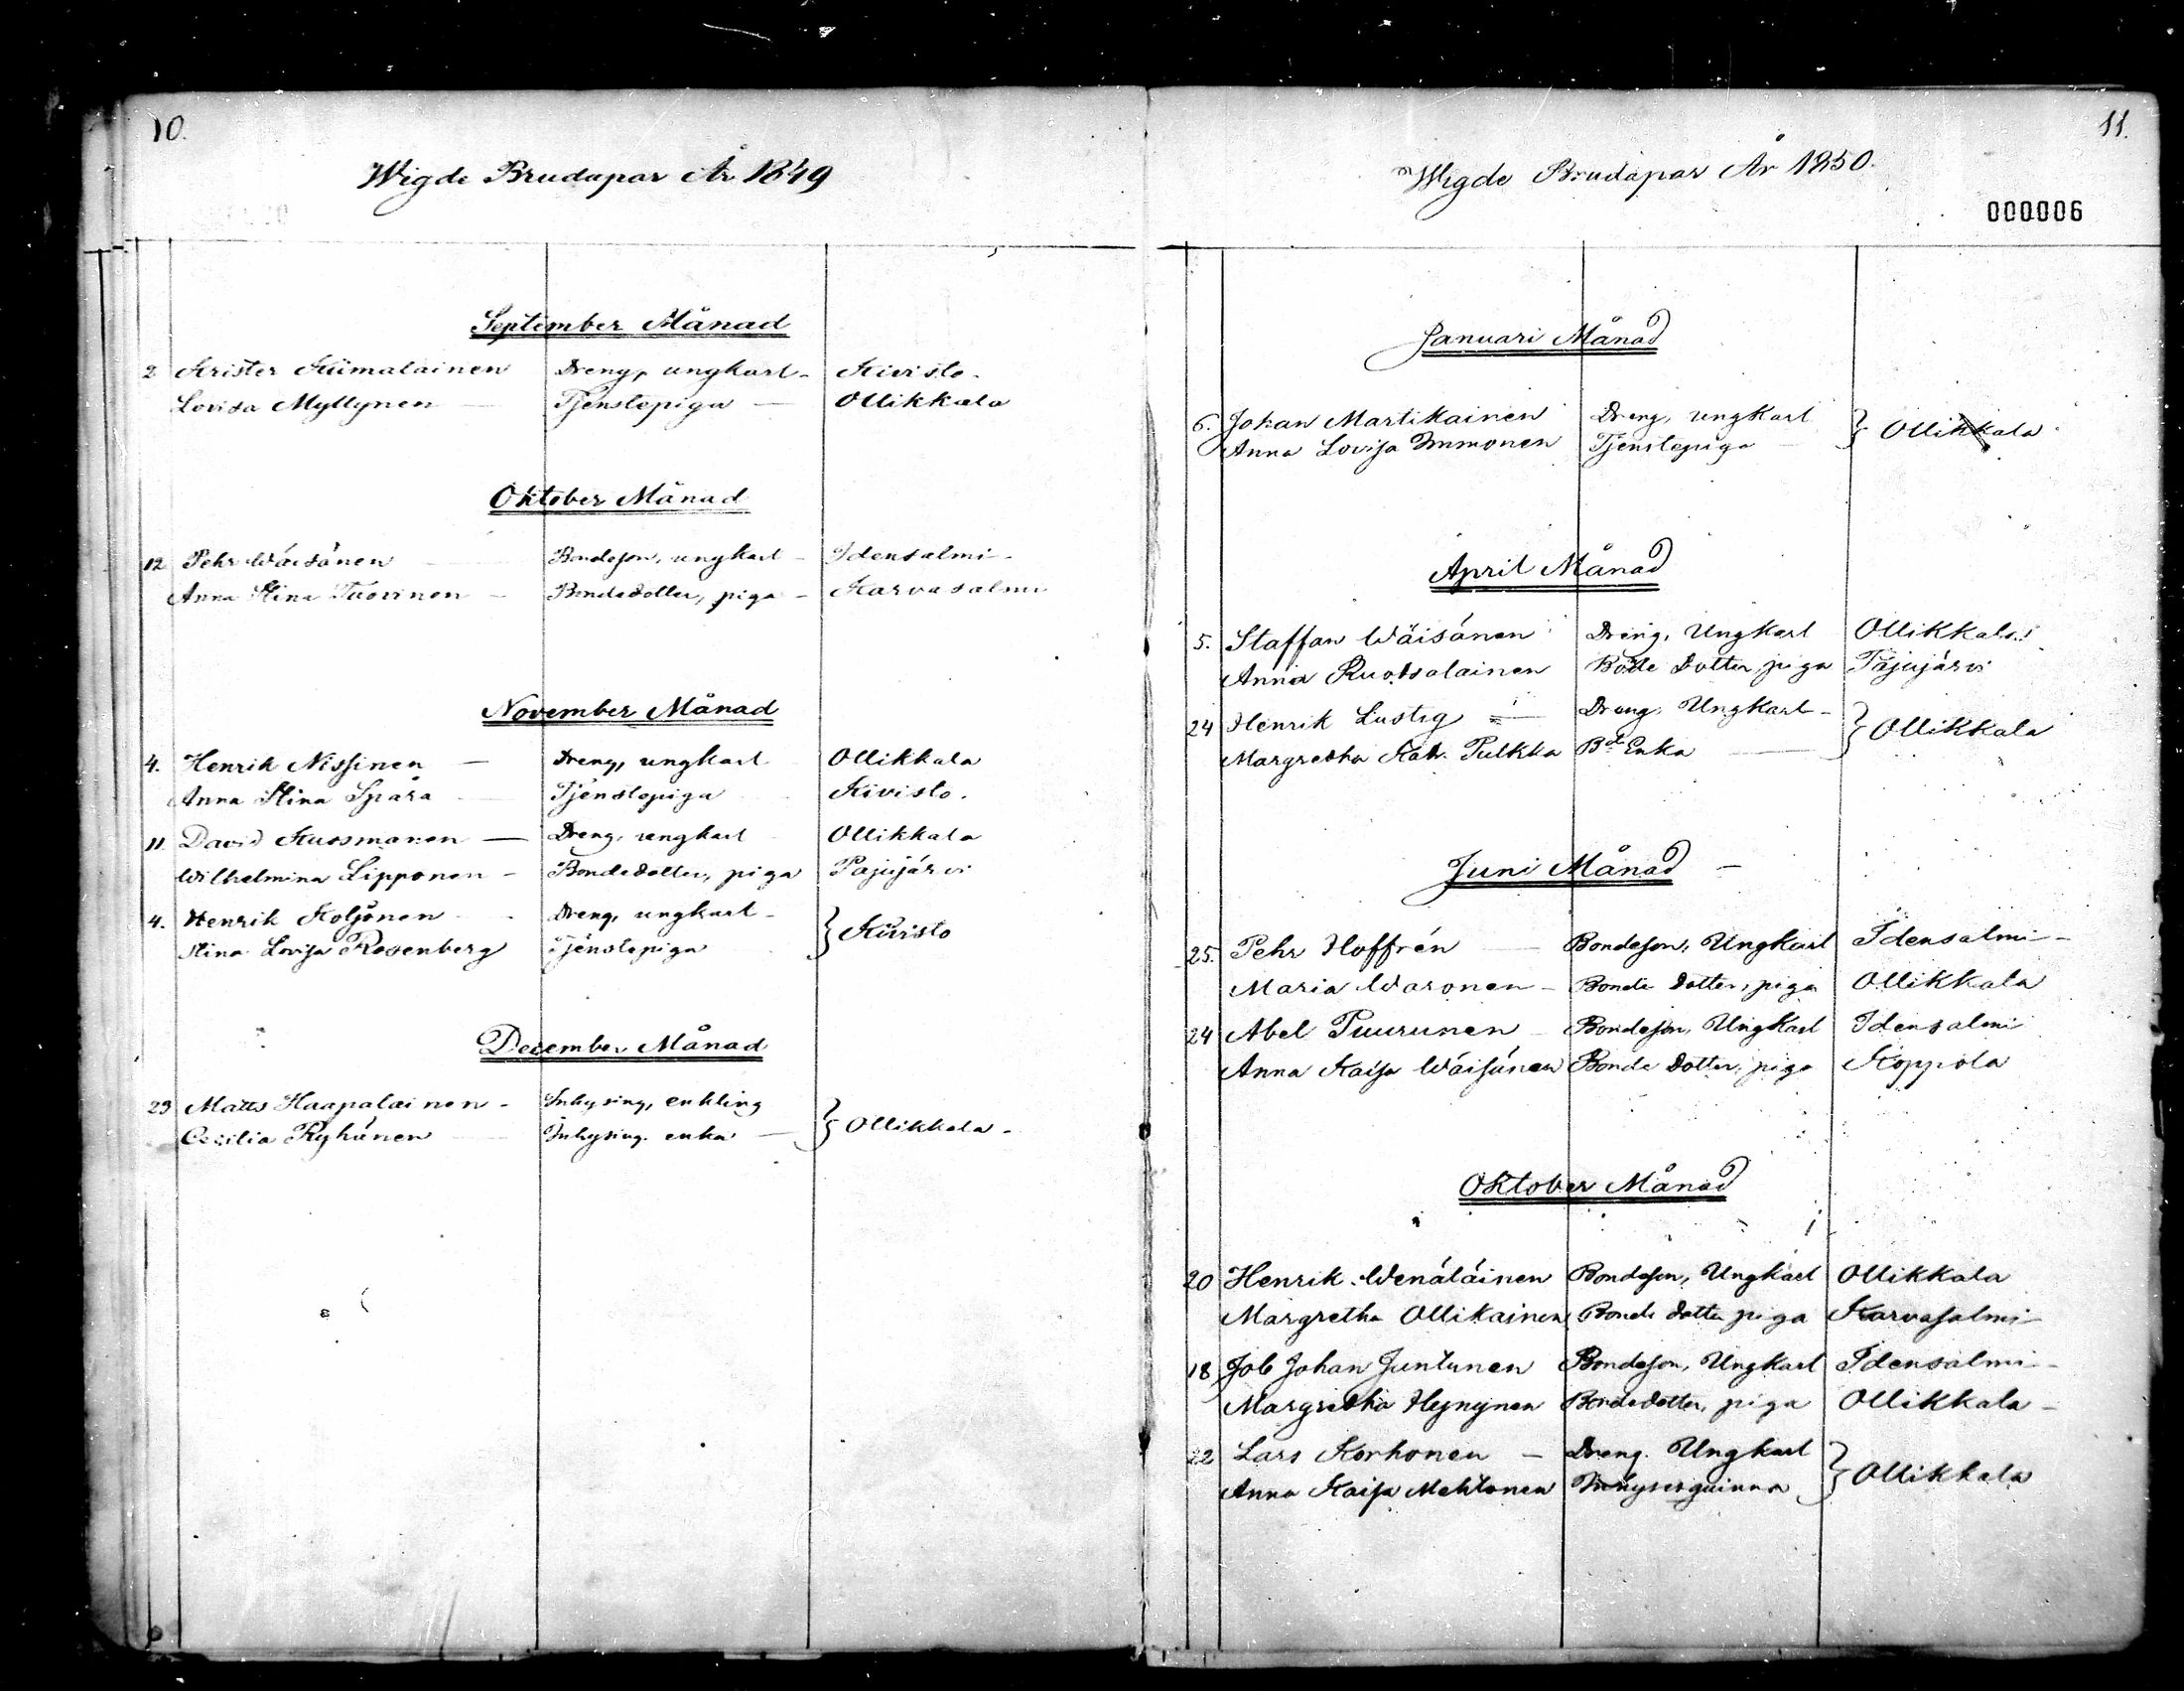 10.
Wigde Brudapar År 1849
September Månad
2 Krister Kiimalainen Dreng, ungkarl Kivisto.
Lovisa Myllynen Tjenstepiga Ollikkala
Oktober Månad
12 Pehr Wäisänen Bondeson, ungkarl Idensalmi
Anna Stina Tuovinen Bondedotter, piga Karvasalmi
November Månad
4. Henrik Nissinen Dreng, ungkarl Ollikkala
Anna Stina Spåra Tjenstepiga Kivisto.
11. David Kussmanen Dreng, ungkarl Ollikkala
Wilhelmina Lipponen Bondedotter, piga Pajujärvi
4. Henrik Koljonen Dreng, ungkarl } Kivisto
Stina Lovisa Rosenberg Tjenstepiga
December Månad
23 Matts Haapalainen Inhysing, enkling } Ollikkala
Cecilia Ryhänen Inhysing. enka
11.
Wigde Brudapar År 1850.
000006
Januari Månad
6. Johan Martikainen Dreng, ungkarl } Ollikkala
Anna Lovisa Immonen Tjenstepiga
April Månad
5. Staffan Wäisänen Dreng, Ungkarl Ollikkala
Anna Ruotsalainen Bonde Dotter, piga Pajujärvi
24 Henrik Lustig Dreng, Ungkarl } Ollikkala
Margretha Katr. Pulkka Bde Enka
Juni Månad
25. Pehr Hoffrén Bondeson, Ungkarl Idensalmi
Maria Waronen Bonde Dotter, piga Ollikkala
24 Abel Puurunen Bondeson, Ungkarl Idensalmi
Anna Kaisa Wäisänen Bonde Dotter, piga Koppola
Oktober Månad
20 Henrik Wenäläinen Bondeson, Ungkarl Ollikkala
Margretha Ollikainen Bonde dotter piga Karvasalmi
18 Job Johan Juntunen Bondeson, Ungkarl Idensalmi
Margretha Heynynen Bondedotter, piga Ollikkala
22 Lars Korhonen Dreng. Ungkarl } Ollikkala
Anna Kaisa Mehtonen